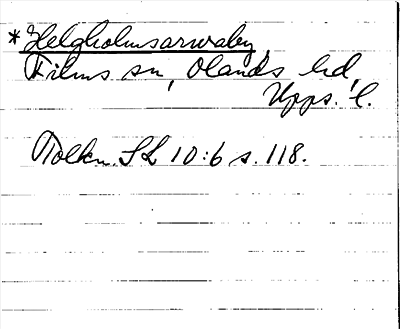 *Helgholmsarwaby,
Films sn, Olands hd,
Upps. l.
Tolkn. SL 10:6 s. 118.